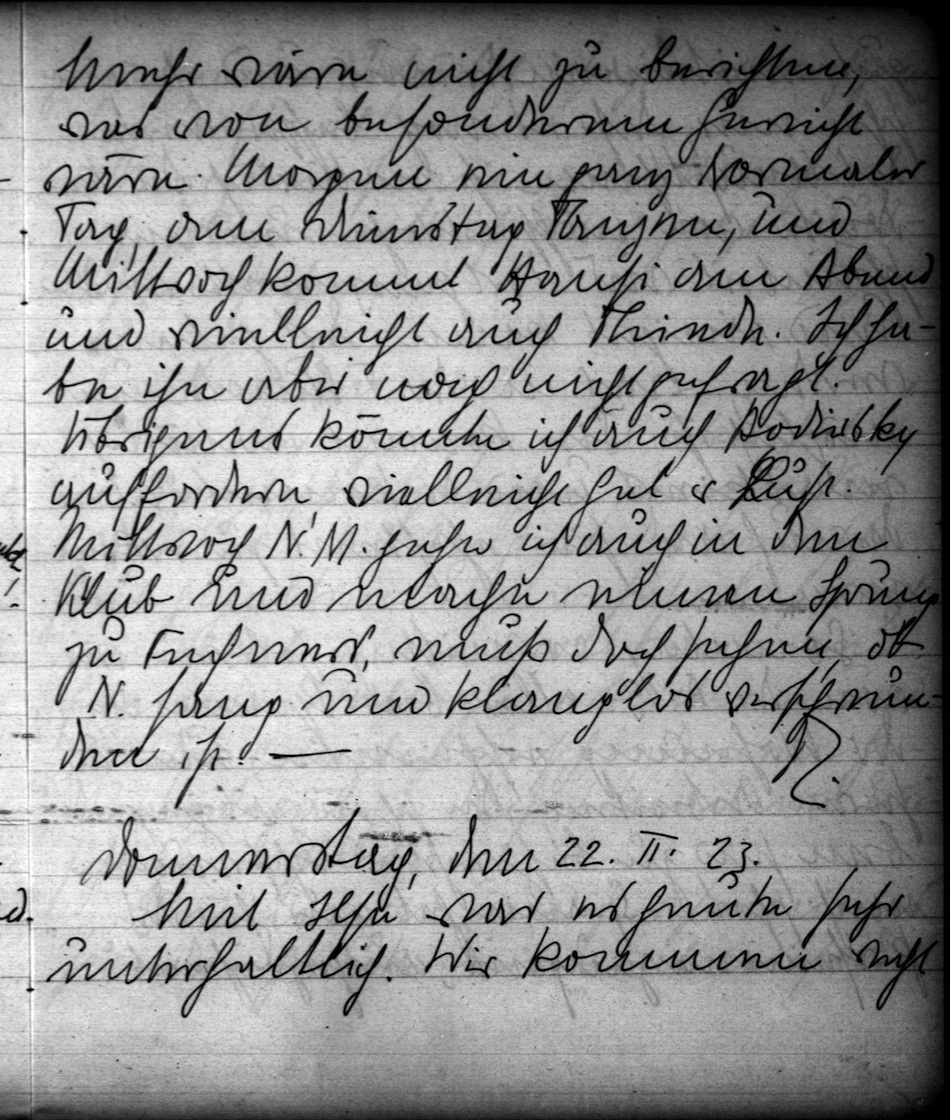 Mehr wäre nicht zu berichten,
was von besonderem Gewicht
wäre. Morgen ein ganz normaler
Tag, am Dienstag Tanzen, und
Mittwoch kommt Hansi am Abend
und vielleicht auch Friedr. Ich ha-
be ihn aber noch nicht gefragt.
Übrigens könnte ich auch Hodinsky
auffordern, vielleicht hat er Lust.
Mittwoch N.M. gehe ich auch in den
Klub und mache einen Sprung
zu, muß doch sehen, ob
N. sang und klanglos verschwun-
den ist. —
Donnerstag, den 22. II. 23.
Mit war es heute sehr
unterhaltlich. Wir kommen recht